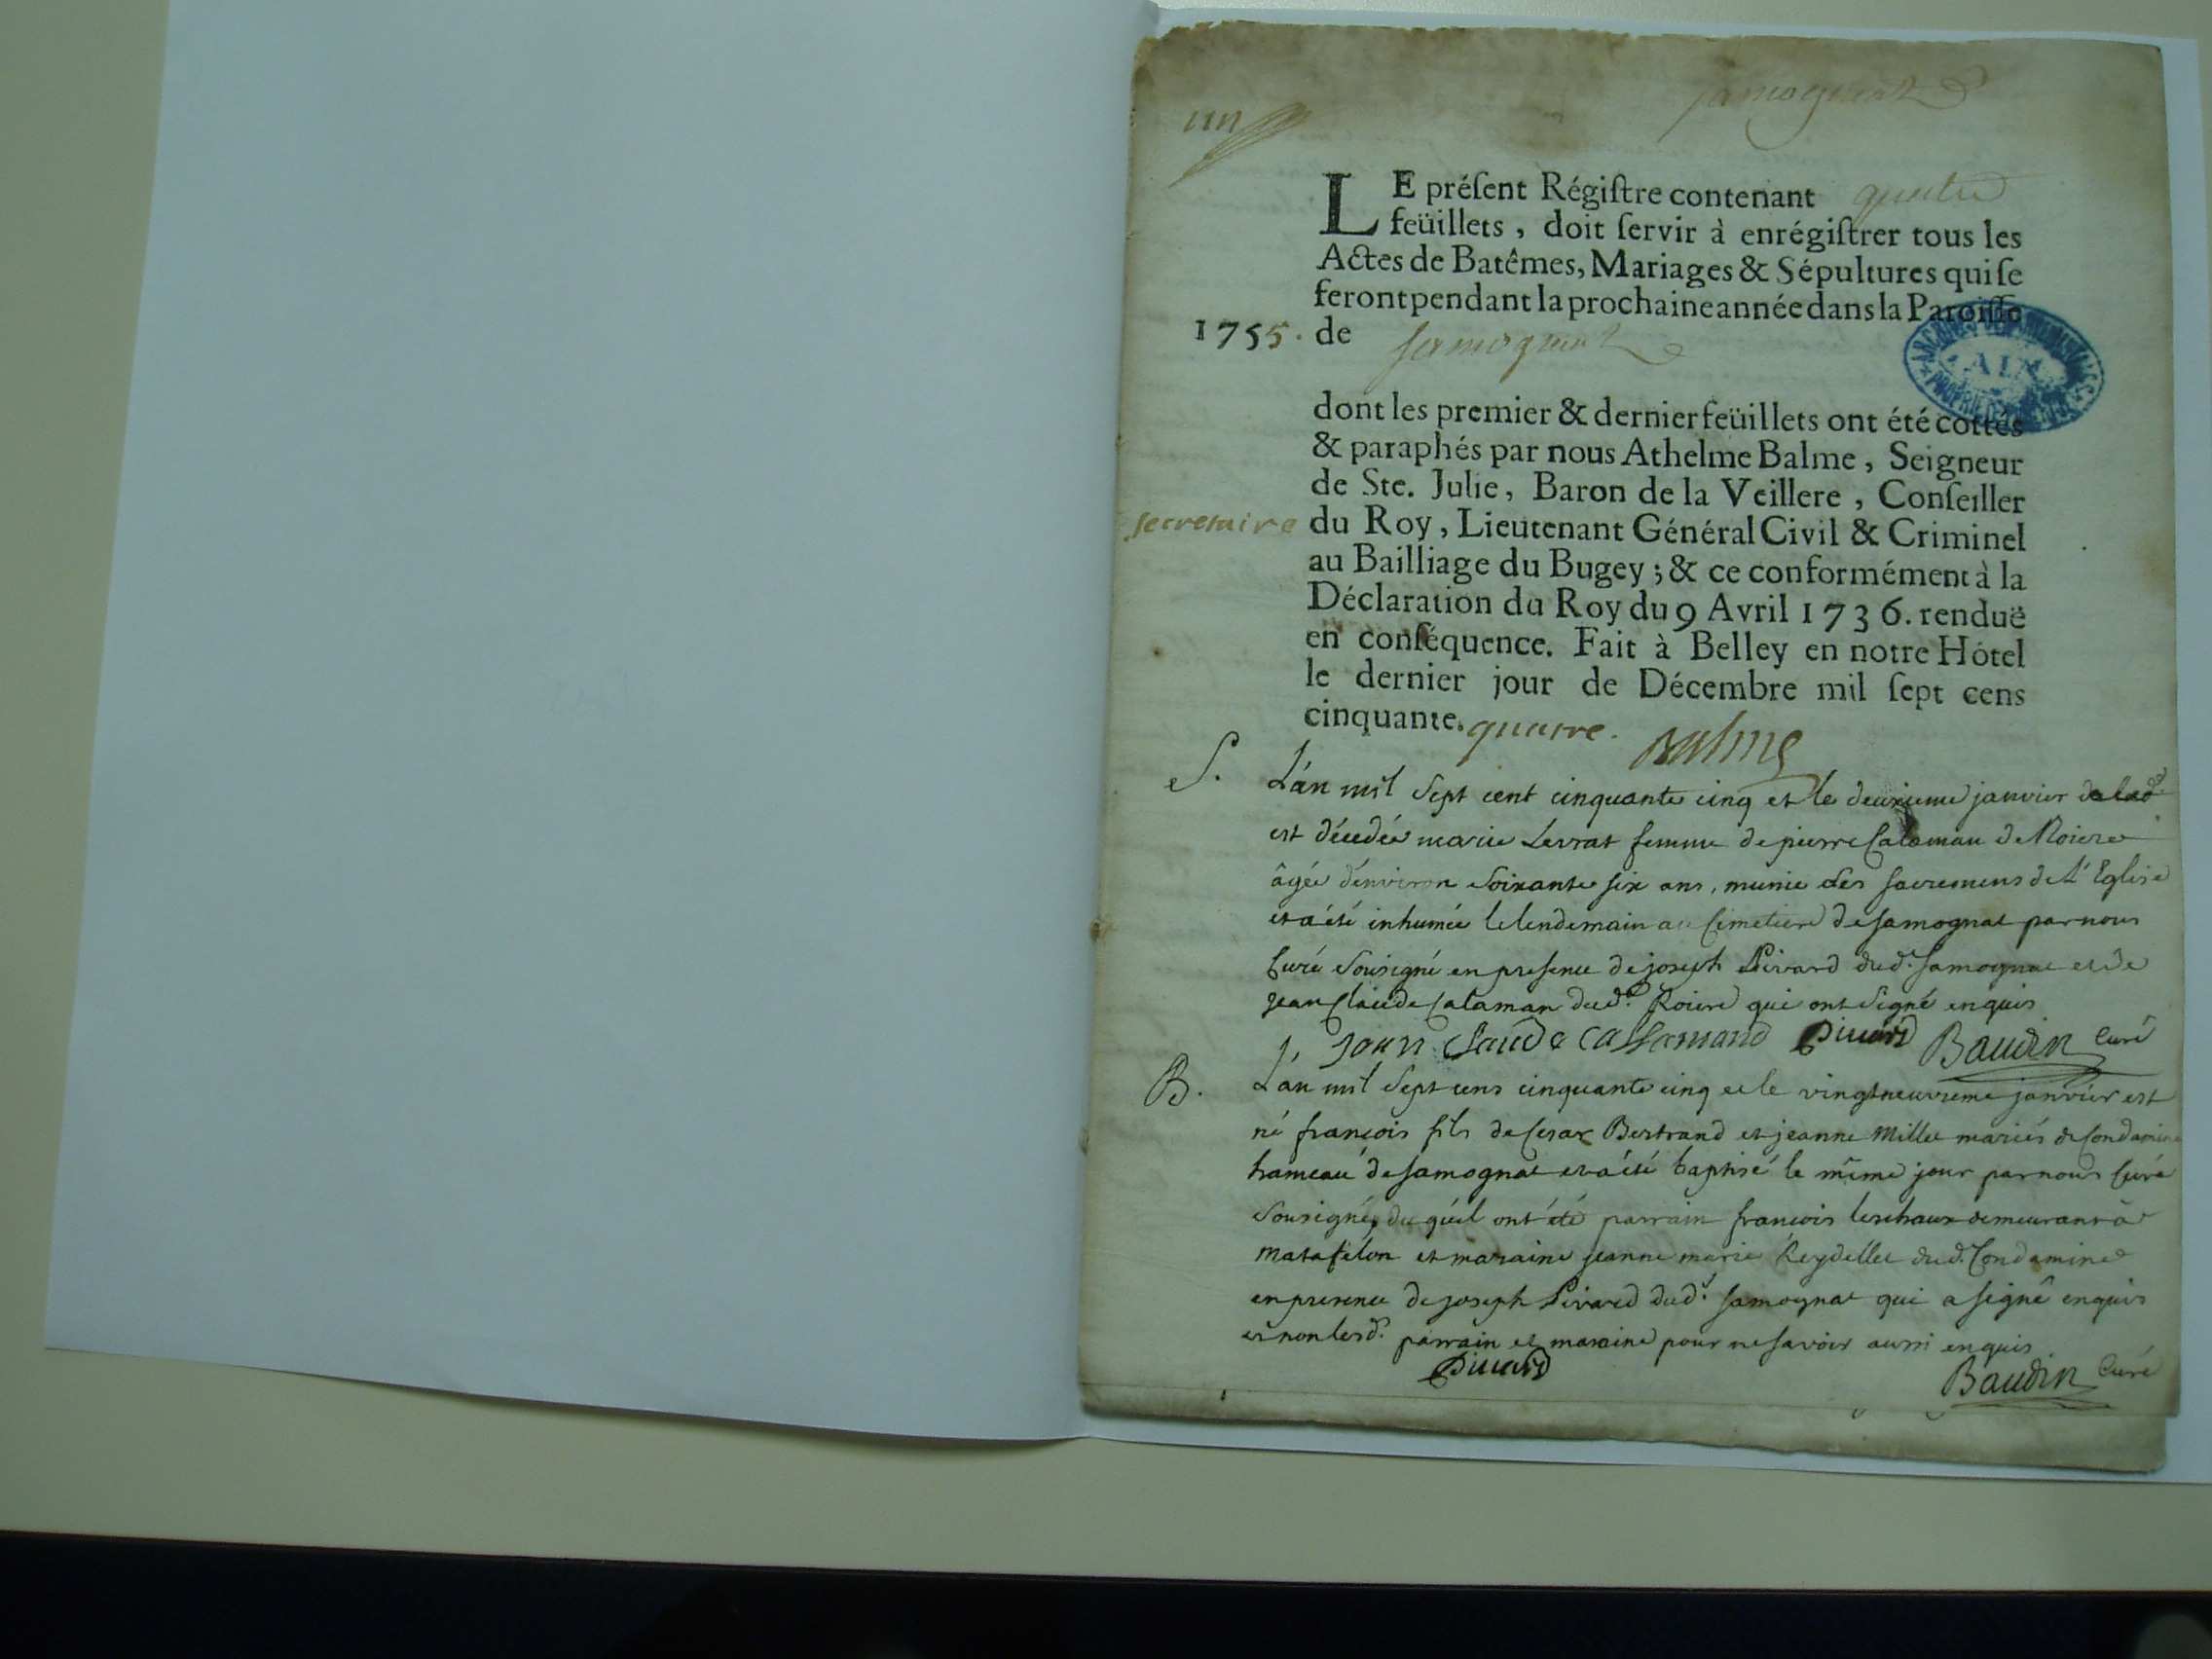 un
samognat
LE préſent Régiſtre contenant quatre
feüillets, doit ſervir à enrégiſtrer tous les
Actes de Batêmes, Mariages & Sépultures qui ſe
feront pendant la prochaine année dans la Paroiſſe
1755. de samognat
ARCHIVES DEPARTEMENTALES
AIN
dont les premier & dernier feüillets ont été cottés
& paraphés par nous Athelme Balme, Seigneur
de Ste. Julie, Baron de la Veillere, Conſeiller
secretaire du Roy, Lieutenant Général Civil & Criminel
au Bailliage du Bugey; & ce conformément à la
Déclaration du Roy du 9 Avril 1736. renduë
en conſéquence. Fait à Belley en notre Hôtel
le dernier jour de Décembre mil ſept cens
cinquante. quatre. Balme
S. L'an mil sept cent cinquante cinq et le deuxieme janvier
est décedée marie Levrat femme de pierre Calaman de Roiere
âgée d'environ soixante six ans, munie des sacremens de l'Eglise
et a été inhumée le lendemain au Cimetiere de samognat par nous
Curé sousigné en presence de joseph Pivard dud. samognat et de
jean Claude Calaman dud. Roiere qui ont signé enquis
Jean Claude Callamand Pivard Baudin Curé
B. L'an mil sept cens cinquante cinq et le vingtneuvieme janvier est
né françois fils de Cesar Bertrand et jeanne Millet mariés de Condamine
hameau de samognat et a été baptisé le même jour par nous Curé
sousigné, duquel ont été parrain françois leschaux demeurant à
matafelon et maraine jeanne marie Reydellet dud. Condamine
en presence de joseph Pivard dud. samognat qui a signé enquis
et non lesd. parrain et maraine pour ne savoir aussi enquis
Pivard Baudin Curé